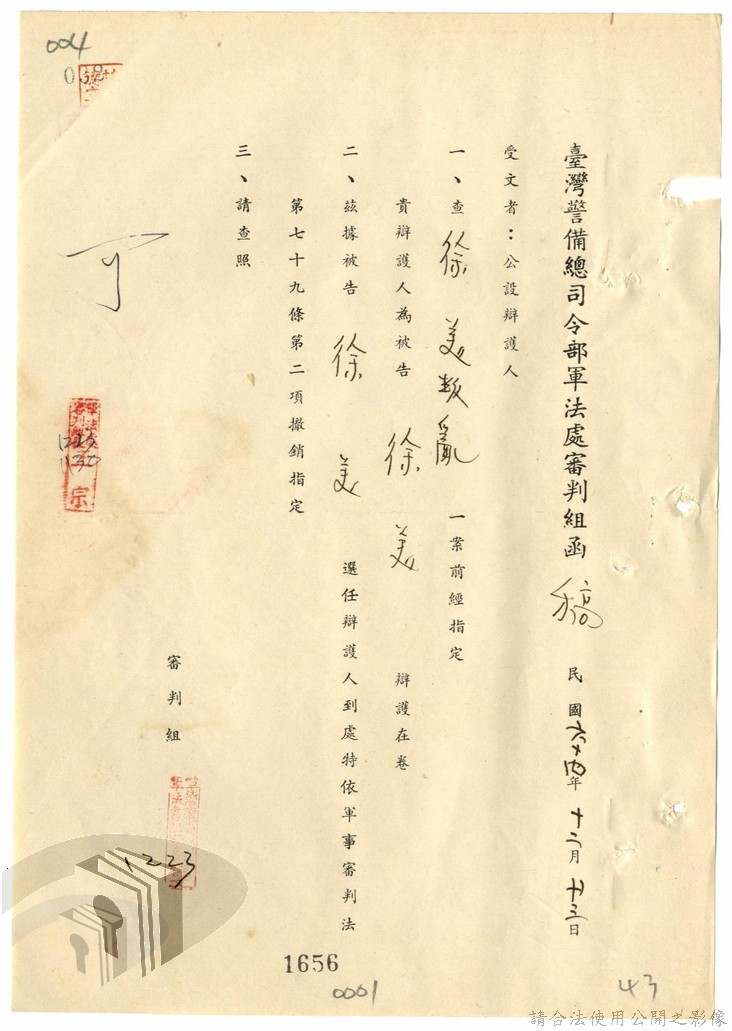 臺灣警備總司令部軍法處審判組函 稿 民國六十四年十二月廿三日
受文者：公設辯護人
一、查 徐美叛亂 一案前經指定
貴辯護人為被告 徐美 辯護在卷
二、茲據被告 徐美 選任辯護人到處特依軍事審判法
第七十九條第二項撤銷指定
三、請查照
審判組
1223
可
004
1656
0001
43
請合法使用公開之影像